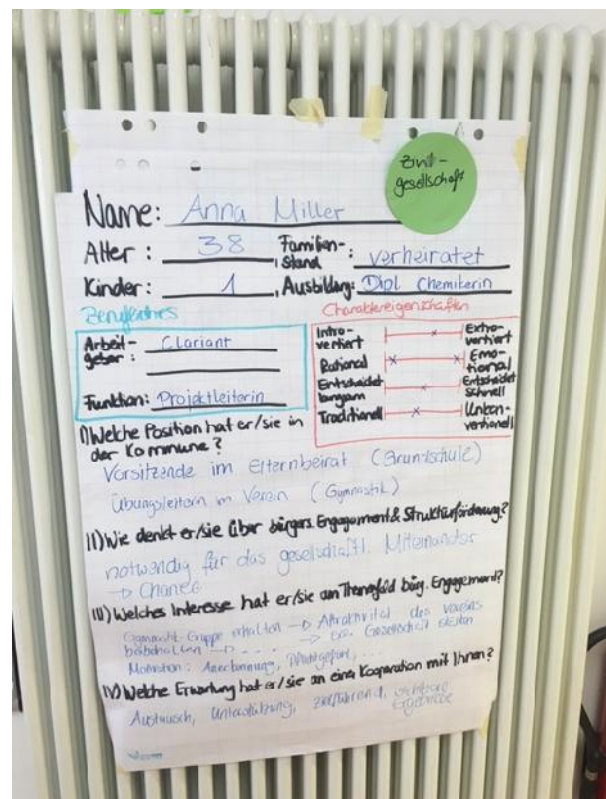 Zivil-
gesellschaft
Name: Anna Miller
Alter: 38 Familien-
stand: verheiratet
Kinder: 1 Ausbildung: Dipl Chemikerin
Berufliches
Charaktereigenschaften
Arbeit-
geber: Clariant
Funktion: Projektleiterin
Intro-
vertiert
Extro-
vertiert
Rational
Emo-
tional
Entscheidet
langsam
Entscheidet
schnell
Traditionell
Unkon-
ventionell
I) Welche Position hat er/sie in
der Kommune?
Vorsitzende im Elternbeirat (Grundschule)
Übungsleiterin im Verein (Gymnastik)
II) Wie denkt er/sie über bürgers. Engagement & Strukturförderung?
notwendig für das gesellschaftl. Miteinander
→ Chance
III) Welches Interesse hat er/sie am Themenfeld bürg. Engagement?
Gymnastik-Gruppe erhalten → Attraktivität des Vereins
beibehalten → ... → Gesellschaft stärken
Motivation: Anerkennung, Pflichtgefühl, ...
IV) Welche Erwartung hat er/sie an eine Kooperation mit Ihnen?
Austausch, Unterstützung, zielführend, sichtbare